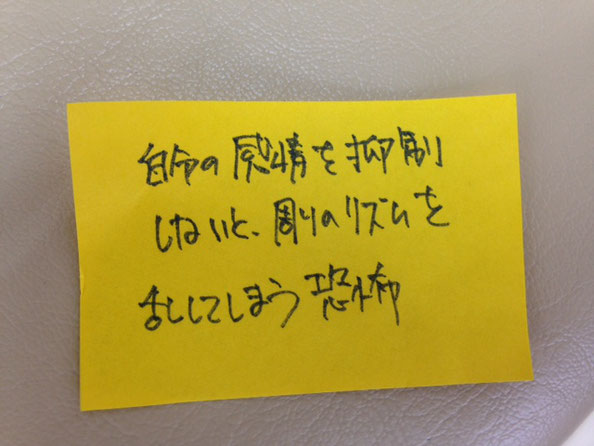 自分の感情を抑制
しないと、周りのリズムを
乱してしまう恐怖